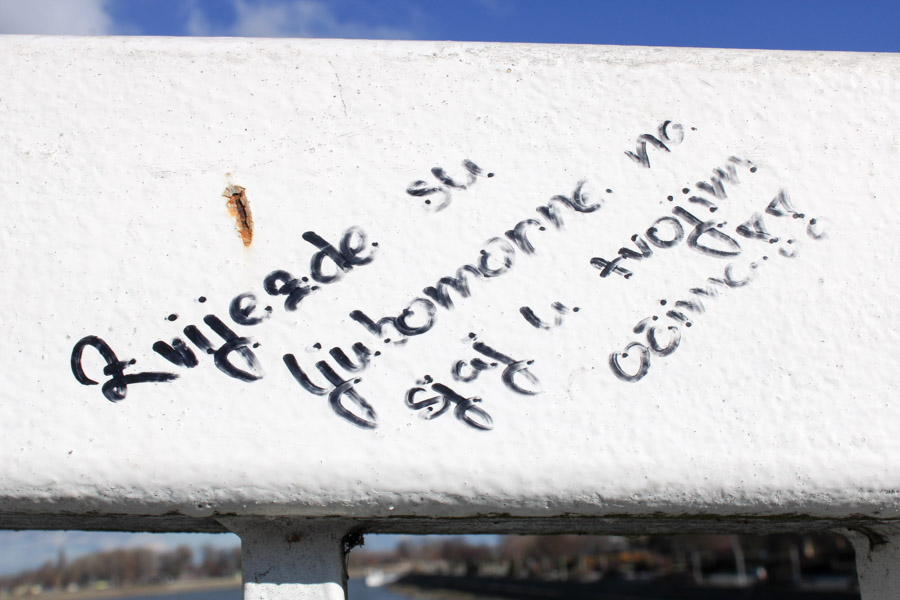 Zvijezde su
ljubomorne na
sjaj u tvojim
očima